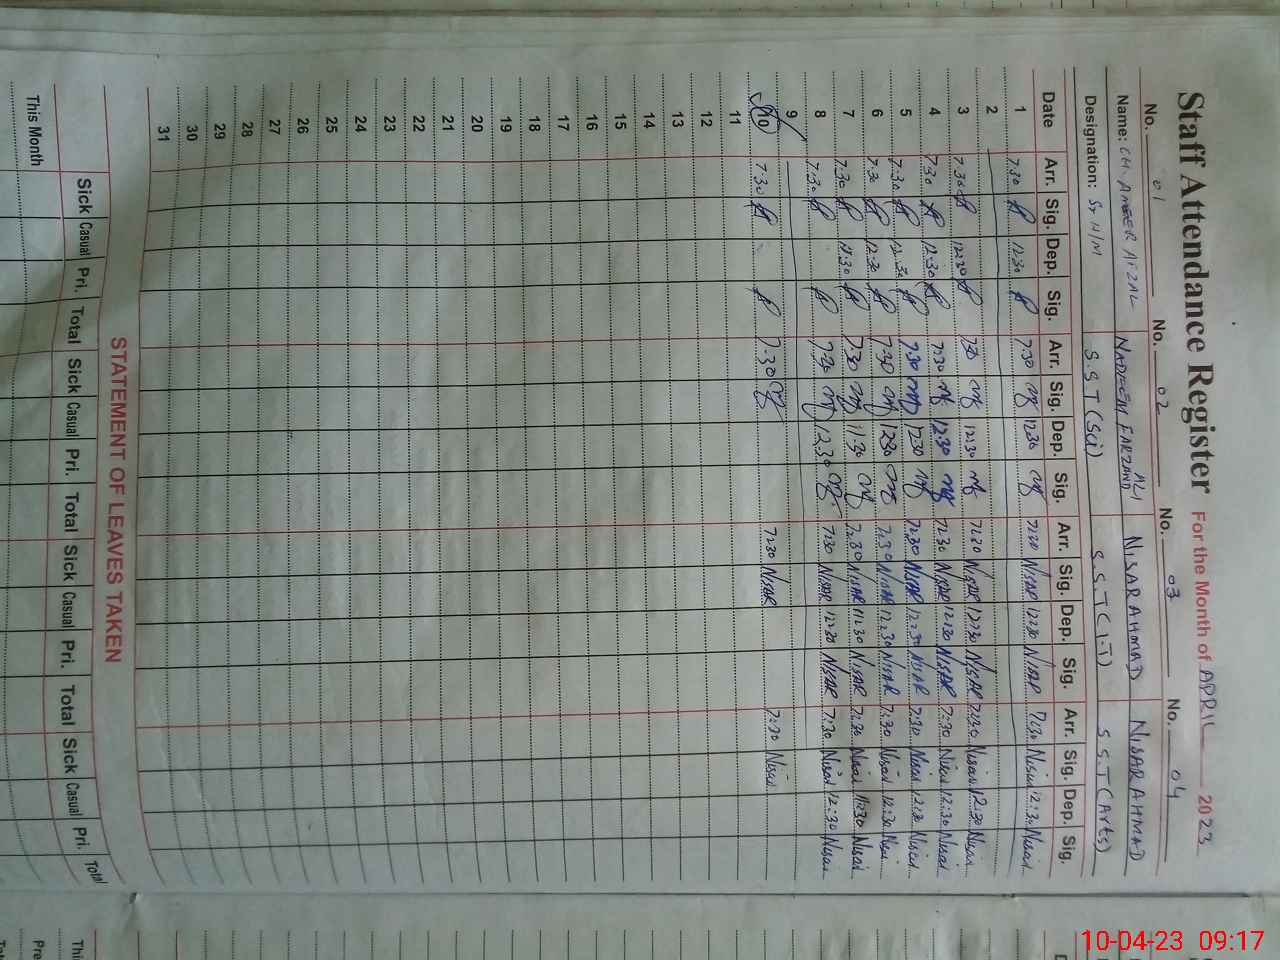 Staff Attendance Register For the Month of APRIL 2023
No. 01 No. 02 No. 03 No. 04
Name: CH. AMEER AFZAL NADEEM FARZAND ALI NISAR AHMAD NISAR AHMAD
Designation: Sr H/M S.S.T (Sci) S.S.T (I.T) S.S.T (Arts)
Date Arr. Sig. Dep. Sig. Arr. Sig. Dep. Sig. Arr. Sig. Dep. Sig. Arr. Sig. Dep. Sig.
1 7.30 12.30 7:30 12.30 7:30 NISAR 12:30 NISAR 7:30 Nisar 12:30 Nisar
2
3 7.30 12:30 7:30 12:30 7:30 NISAR 12:30 NISAR 7:30 Nisar 12:30 Nisar
4 7.30 12:30 7:30 12:30 7:30 NISAR 12:30 NISAR 7:30 Nisar 12:30 Nisar
5 7:30 12:30 7:30 12:30 7:30 NISAR 12:30 NISAR 7:30 Nisar 12:30 Nisar
6 7.30 12:30 7:30 12:30 7:30 NISAR 12:30 NISAR 7:30 Nisar 12:30 Nisar
7 7.30 11:30 7:30 11:30 7:30 NISAR 11:30 NISAR 7:30 Nisar 11:30 Nisar
8 7:30 7:30 12:30 7:30 NISAR 12:30 NISAR 7:30 Nisar 12:30 Nisar
9
10 7:30 7:30 7:30 NISAR 7:30 Nisar
11
12
13
14
15
16
17
18
19
20
21
22
23
24
25
26
27
28
29
30
31
STATEMENT OF LEAVES TAKEN
Sick Casual Pri. Total Sick Casual Pri. Total Sick Casual Pri. Total Sick Casual Pri. Total
This Month
10-04-23 09:17